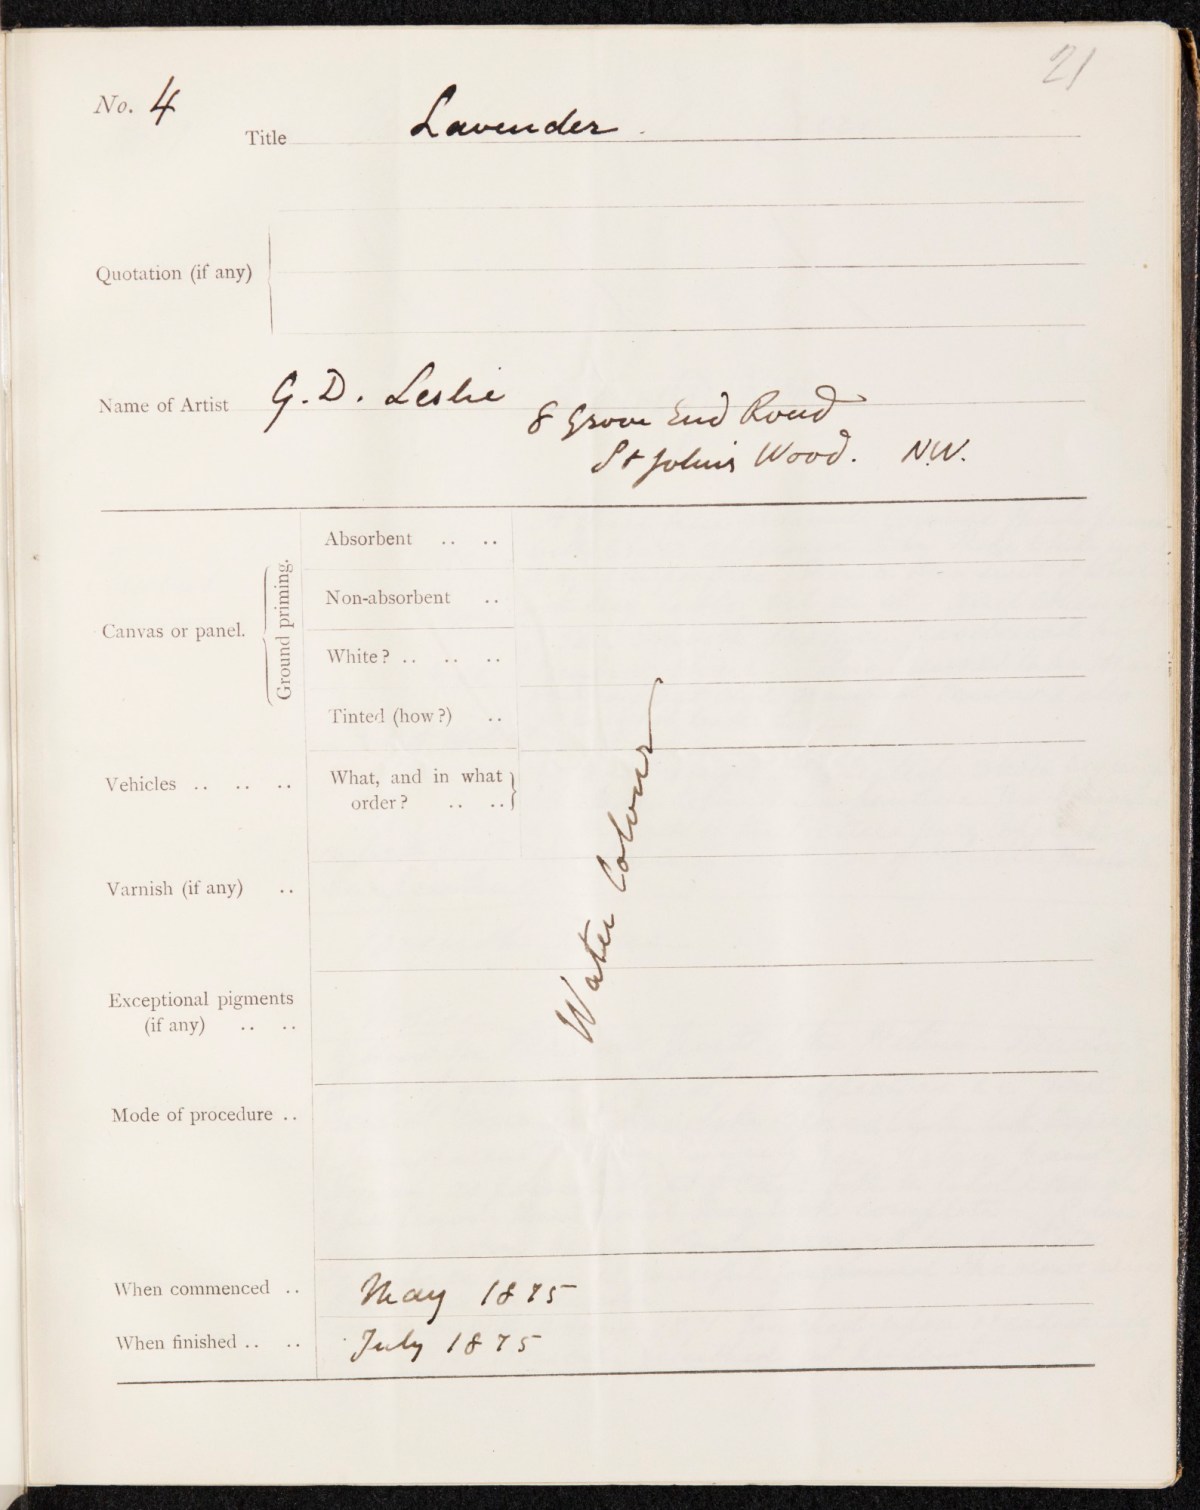 21
No. 4
Title Lavender.
Quotation (if any)
Name of Artist G. D. Leslie
8 Grove End Road
St Johns Wood. N.W.
Canvas or panel.
Ground priming.
Absorbent .. ..
Non-absorbent ..
White? .. .. ..
Tinted (how?) ..
Vehicles .. .. ..
What, and in what
order? .. ..
Water Colour
Varnish (if any) ..
Exceptional pigments
(if any) .. ..
Mode of procedure ..
When commenced .. May 1875
When finished .. .. July 1875